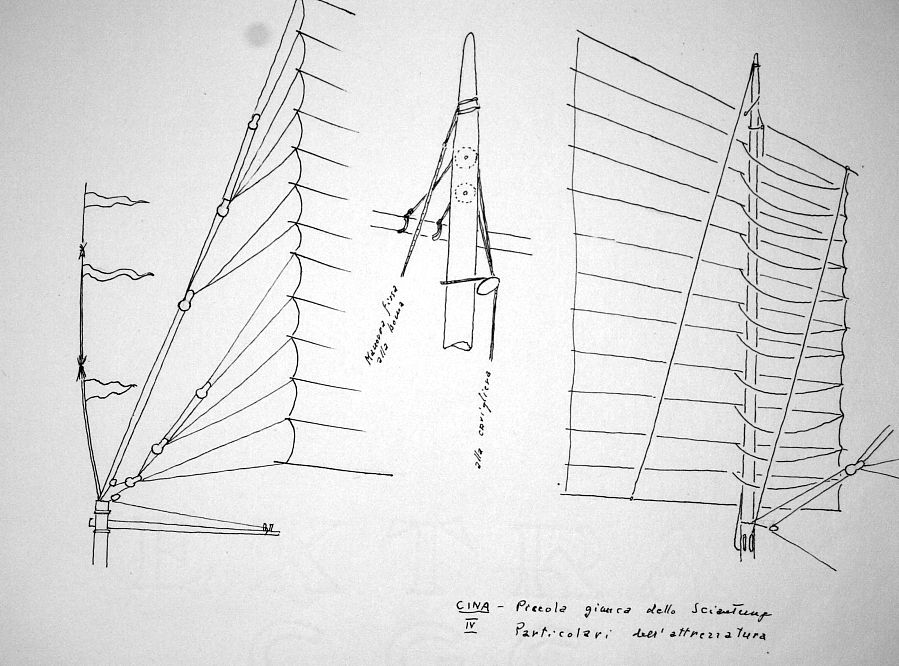 Manovra fissa
alla boma
alla cavigliera
CINA - Piccola giunca dello Sciantung
IV Particolari dell'attrezzatura